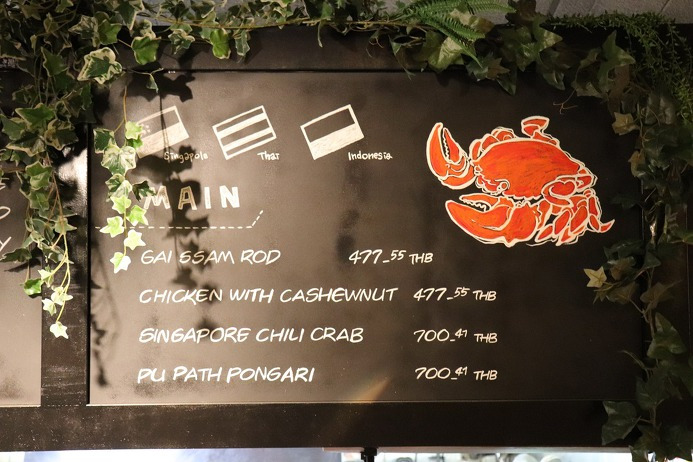 Singapola
Thai
Indonesia
MAIN
GAI SSAM ROD 477.55 THB
CHICKEN WITH CASHEWNUT 477.55 THB
SINGAPORE CHILI CRAB 700.41 THB
PU PATH PONGARI 700.41 THB